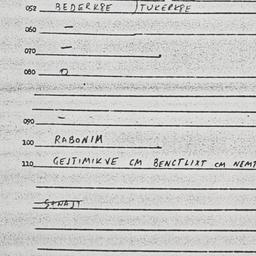 052 BEDERKPE ) TUKEPKPE
060 –
070 –
080 0
090 –
100 RABONIM
110 GESTIMIKVE CM BENCTLIXT CM NEMT